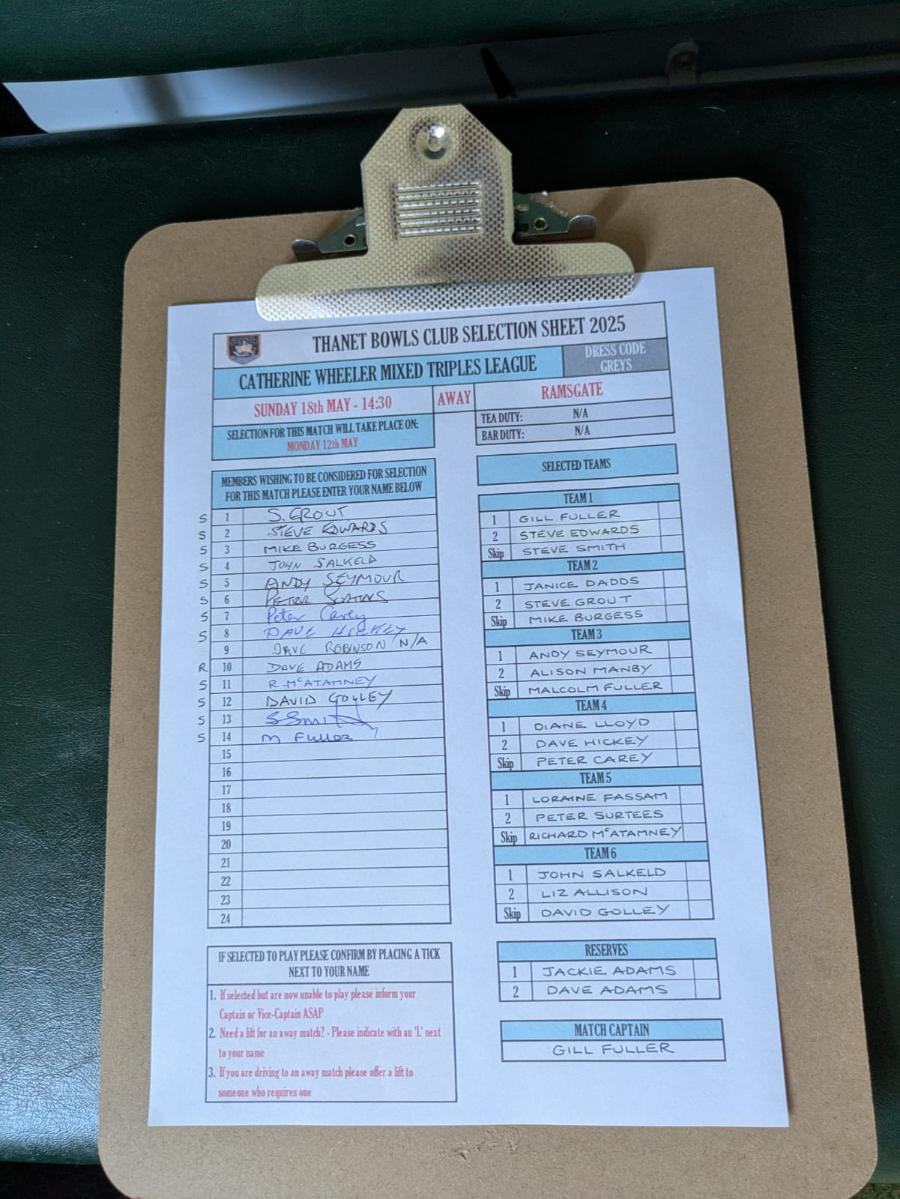 THANET BOWLS CLUB SELECTION SHEET 2025
CATHERINE WHEELER MIXED TRIPLES LEAGUE
DRESS CODE
GREYS
SUNDAY 18th MAY - 14:30
AWAY
RAMSGATE
SELECTION FOR THIS MATCH WILL TAKE PLACE ON:
MONDAY 12th MAY
TEA DUTY: N/A
BAR DUTY: N/A
MEMBERS WISHING TO BE CONSIDERED FOR SELECTION
FOR THIS MATCH PLEASE ENTER YOUR NAME BELOW
S 1 S. GROUT
S 2 STEVE EDWARDS
S 3 MIKE BURGESS
S 4 JOHN SALKELD
S 5 ANDY SEYMOUR
S 6 PETER
S 7 Peter Carey
S 8 DAVE HICKEY
9 DAVE ROBINSON N/A
R 10 DAVE ADAMS
S 11 R. McATAMNEY
S 12 DAVID GOLLEY
S 13 S Smith
S 14 M Fuller
15
16
17
18
19
20
21
22
23
24
IF SELECTED TO PLAY PLEASE CONFIRM BY PLACING A TICK
NEXT TO YOUR NAME
1. If selected but are now unable to play please inform your
Captain or Vice-Captain ASAP
2. Need a lift for an away match? - Please indicate with an 'L' next
to your name
3. If you are driving to an away match please offer a lift to
someone who requires one
SELECTED TEAMS
TEAM 1
1 GILL FULLER
2 STEVE EDWARDS
Skip STEVE SMITH
TEAM 2
1 JANICE DADDS
2 STEVE GROUT
Skip MIKE BURGESS
TEAM 3
1 ANDY SEYMOUR
2 ALISON MANBY
Skip MALCOLM FULLER
TEAM 4
1 DIANE LLOYD
2 DAVE HICKEY
Skip PETER CAREY
TEAM 5
1 LORAINE FASSAM
2 PETER SURTEES
Skip RICHARD McATAMNEY
TEAM 6
1 JOHN SALKELD
2 LIZ ALLISON
Skip DAVID GOLLEY
RESERVES
1 JACKIE ADAMS
2 DAVE ADAMS
MATCH CAPTAIN
GILL FULLER